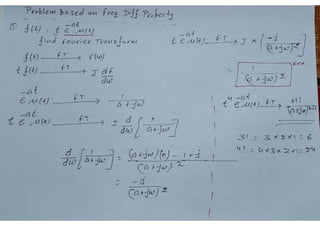 Problem based on Freq. Diff Property
① f(t) = t e^{-at} u(t)
find Fourier Transform
f(t) —FT→ F(ω)
t f(t) —FT→ J dF/dω
e^{-at} u(t) —FT→ 1/(a+jω)
t e^{-at} u(t) —FT→ J d/dω [1/(a+jω)]
d/dω [1/(a+jω)] = ((a+jω)(0) - 1×j)/(a+jω)^2
= -j/(a+jω)^2
t e^{-at} u(t) —FT→ J × (-j/(a+jω)^2)
= 1/(a+jω)^2
t^n e^{-at} u(t) —FT→ n!/(a+jω)^{n+1}
3! = 3×2×1 = 6
4! = 4×3×2×1 = 24